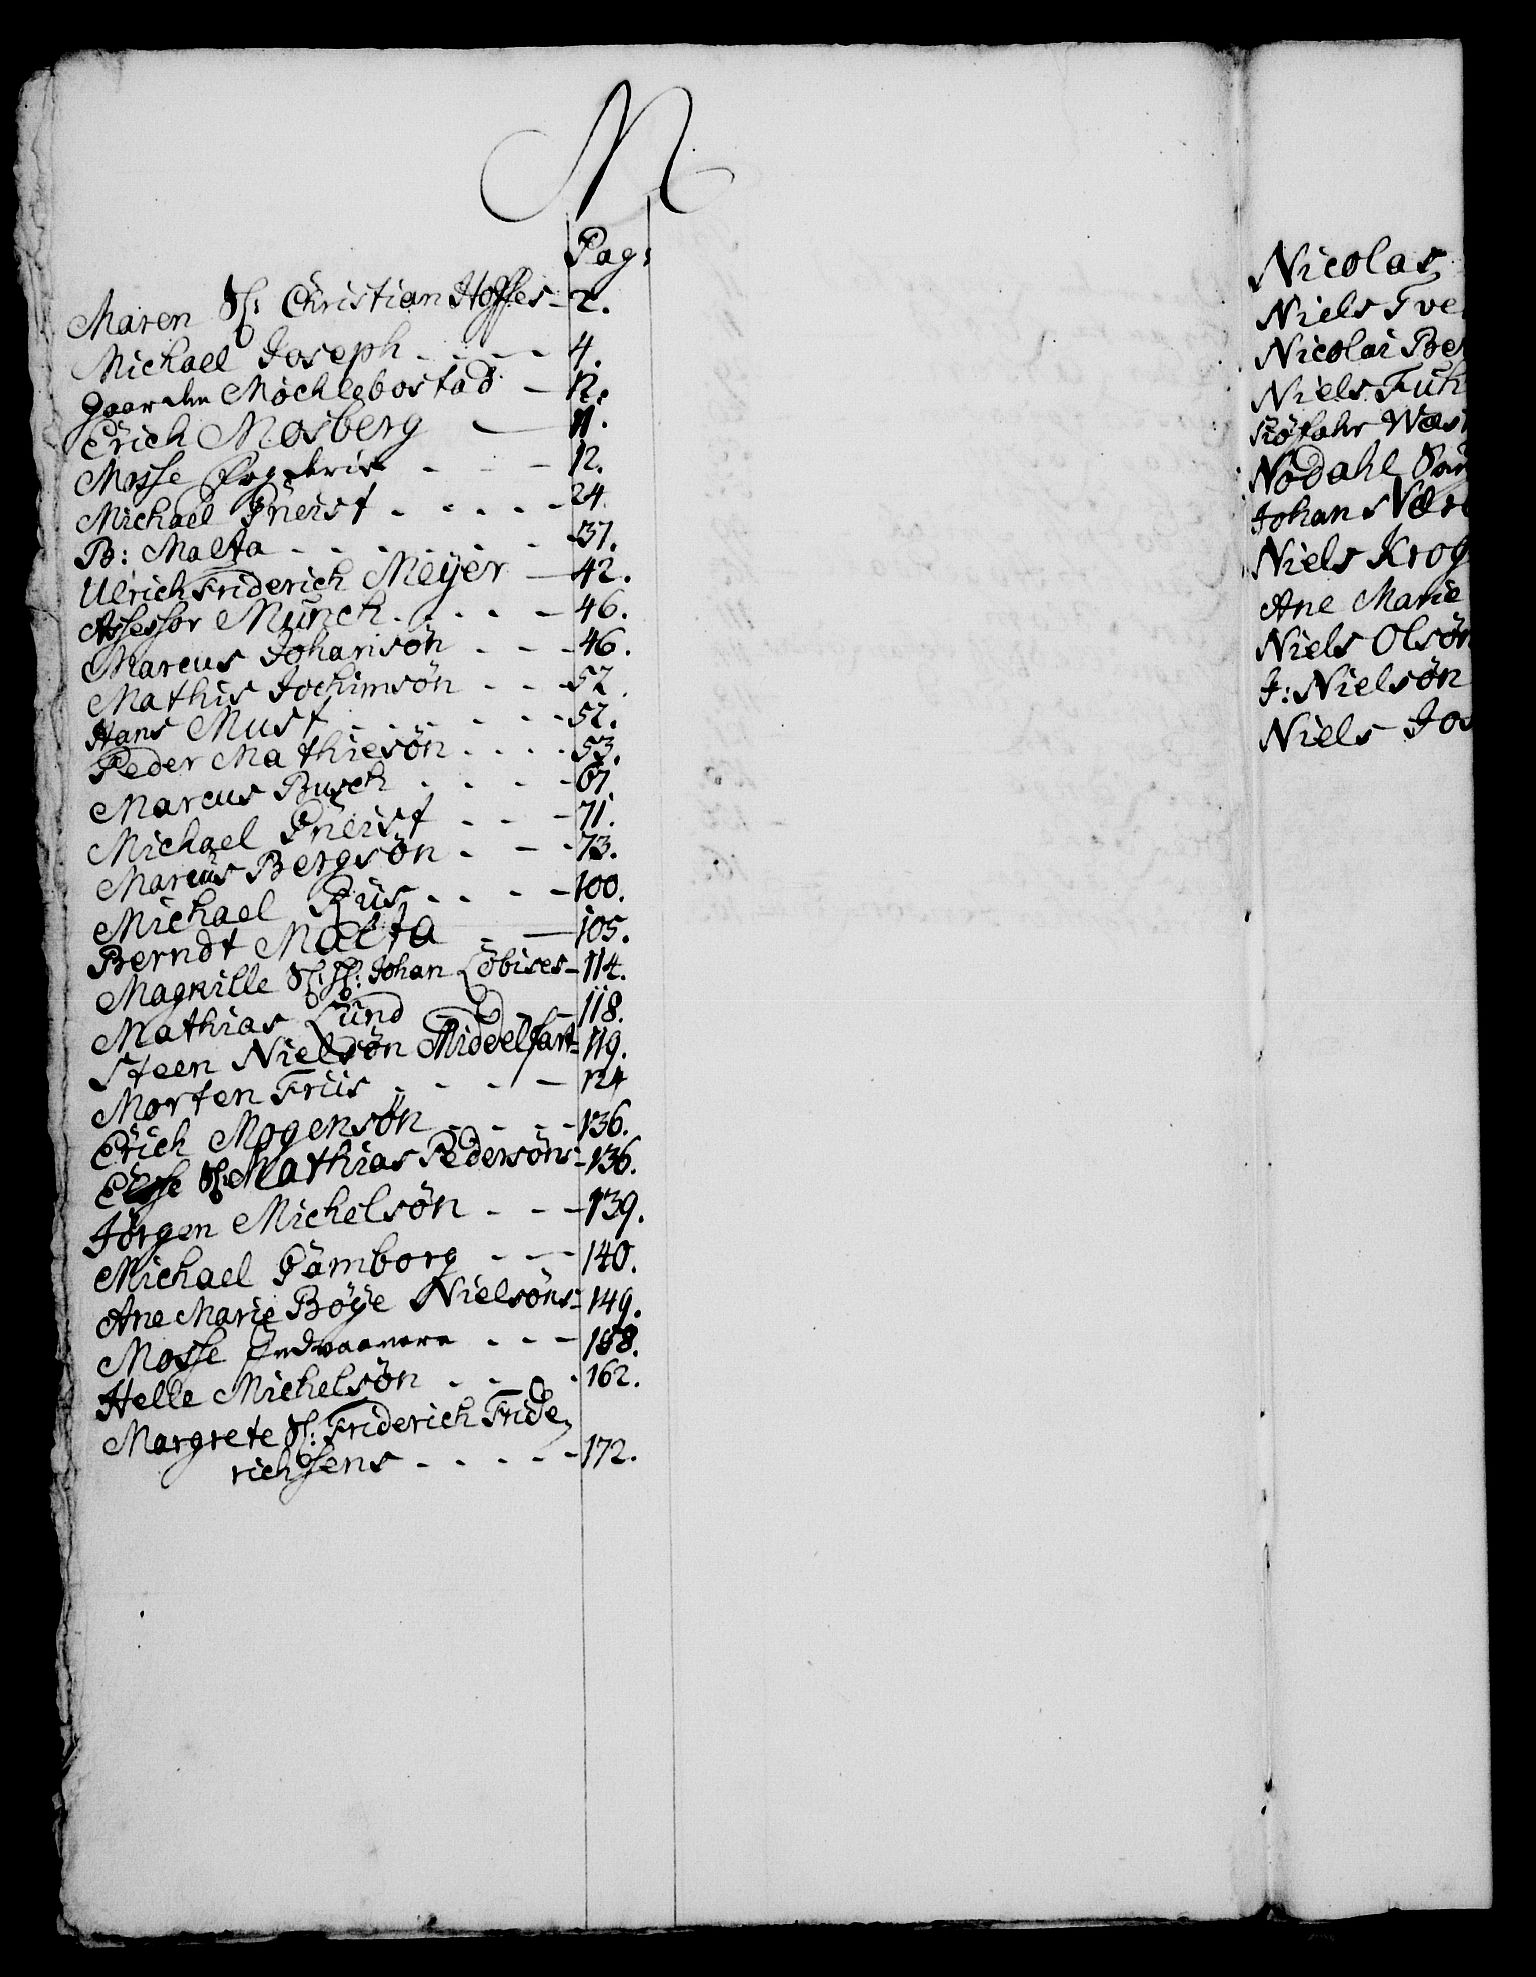 M
Pag:
Maren Sl: Christian Hoffes - 2.
Michael Joseph - - - - 4.
Gaarden Möchlebostad - 12.
Erich Mosberg — 11.
Mosse - - - 12.
Michael Pneist - - - - - 24.
B: Malta - - - - - - - 37.
Ulrich Friderich Meÿer - 42.
Assessor Münch - - - - 46.
Marcus Johansön - - - 46.
Mathis Jochimsön - - - 52.
Hans Must - - - - - - - 52.
Peder Mathiesön - - - - 53.
Marcus Busch - - - - 67.
Michael Pneist - - - 71.
Marcus Bergsön - - - 73.
Michael Rüs - - - - 100.
Berndt Malta - — 105.
Magnille Sl: Sl: Johan Löbises - 114.
Mathias Lünd - - - 118.
Steen Nielsön Middelfart - 119.
Morten Friis - - - - 124
Erich Mogensön - - - - 136.
Else Sl: Mathias Pedersöns - 136.
Jörgen Michelsön - - - 139.
Michael Pamborg - - - 140.
Ane Marie Böÿe Nielsöns - 149.
Mosse Indvaanere - - - 158.
Helle Michelsön - - - - 162.
Margrete Sl: Friderich Fride
richsens - - - - - 172.
Nicolas
Niels Tve
Nicolai Be
Niels Fuh
Næs
Nodahl
Johan Nær
Niels Krog
Ane Marie
Niels Olsön
J: Nielsön
Niels Jos